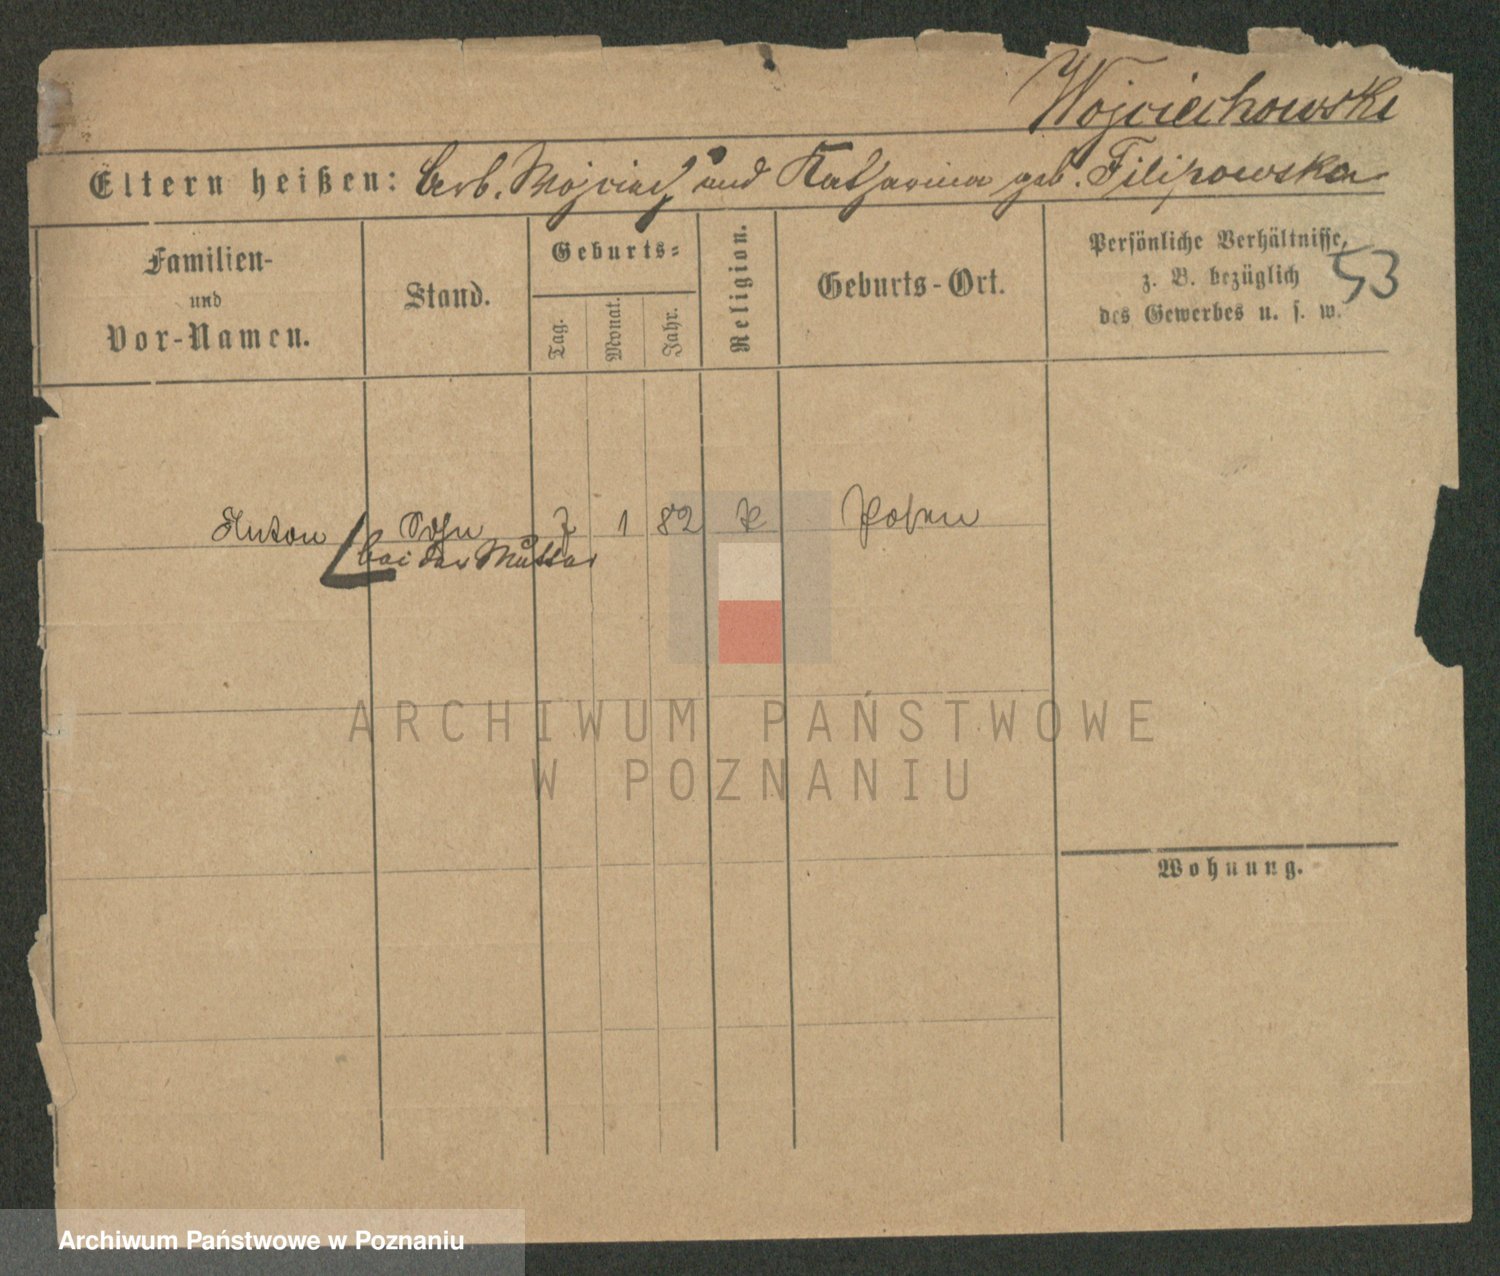 Wojciechowski
Eltern heißen: Arb. Wojciech und Katharina geb. Filipowska
Familien-
und
Vor-Namen.
Stand.
Geburts-
Tag.
Monat.
Jahr.
Religion.
Geburts-Ort.
Persönliche Verhältnisse,
z. B. bezüglich
des Gewerbes u. s. w.
53
Anton Sohn 7 1 82 k Posen
bei der Mutter
ARCHIWUM PAŃSTWOWE
W POZNANIU
Wohnung.
Archiwum Państwowe w Poznaniu